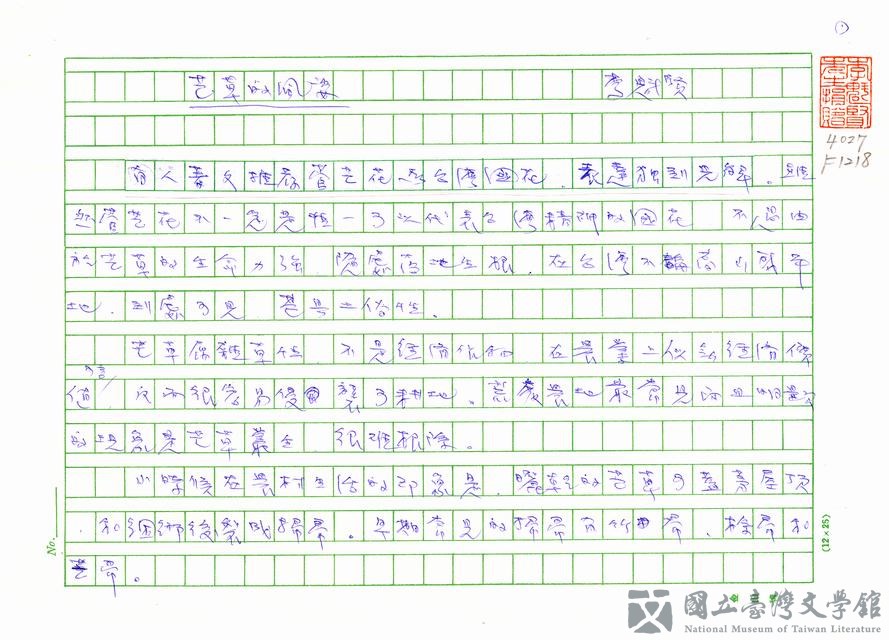 ①
芒草的風姿　　李魁賢
4027
F1218
有人著文推薦管芒花為台灣國花，表達獨到見解。雖
然管芒花不一定是唯一可以代表台灣精神的國花，不過由
於芒草的生命力強，隨處落地生根，在台灣不論高山或平
地，到處可見，甚具土俗性。
芒草屬雜草性，不是經濟作物，在農業上似無經濟價
值可言，反而很容易侵襲可耕地。荒廢農地最常見而且明顯
的現象是芒草叢生，很難根除。
小時候在農村生活的印象是，曬乾的芒草可蓋茅屋頂
，和綑綁後製成掃帚。早期常見的掃帚有竹帚、棕帚和
芒帚。
No.
(12×25)
國立臺灣文學館
National Museum of Taiwan Literature